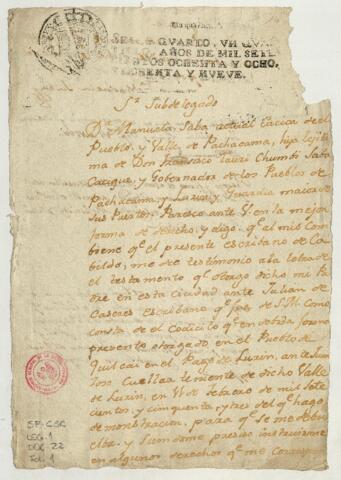 SELLO QVARTO, VN QVAR
AÑOS DE MIL SETE
CIENTOS OCHENTA Y OCHO,
OCHENTA Y NVEVE.
Sr. Subdelegado
Da. Manuela Saba actual Cacica de el
Pueblo y Valle de Pachacama, hija lejiti
ma de Don Francisco Tauri Chumbi Saba
Cacique, y Governador de los Pueblos de
Pachacama y Lurin y Guardia maior de
sus Puertos Paresco ante V. en la mejor
forma de derecho, y digo, qe. al mio Com
biene qe. el presente escribano de Ca
bildo, me de testimonio a la letra de
el testamento qe. otorgo dicho mi Pa
dre en esta ciudad ante Julian de
Caseres Escribano qe. fue de S.M. Como
consta de el Codicilo qe. en debida forma
presento otorgado en el Pueblo de
Quilcai en el de Lurin, ante Juan
Jose Cuellar teniente de dicho Valle
de Lurin, en de febrero de mil sete
cientos, y cinquenta y tres del qe. hago
demonstracion, para qe. se me debu
elba. y siendome presiso instruirme
en algunos derechos qe. me
SP-CSC
LEG. 1
DOC. 22
Fol. 1